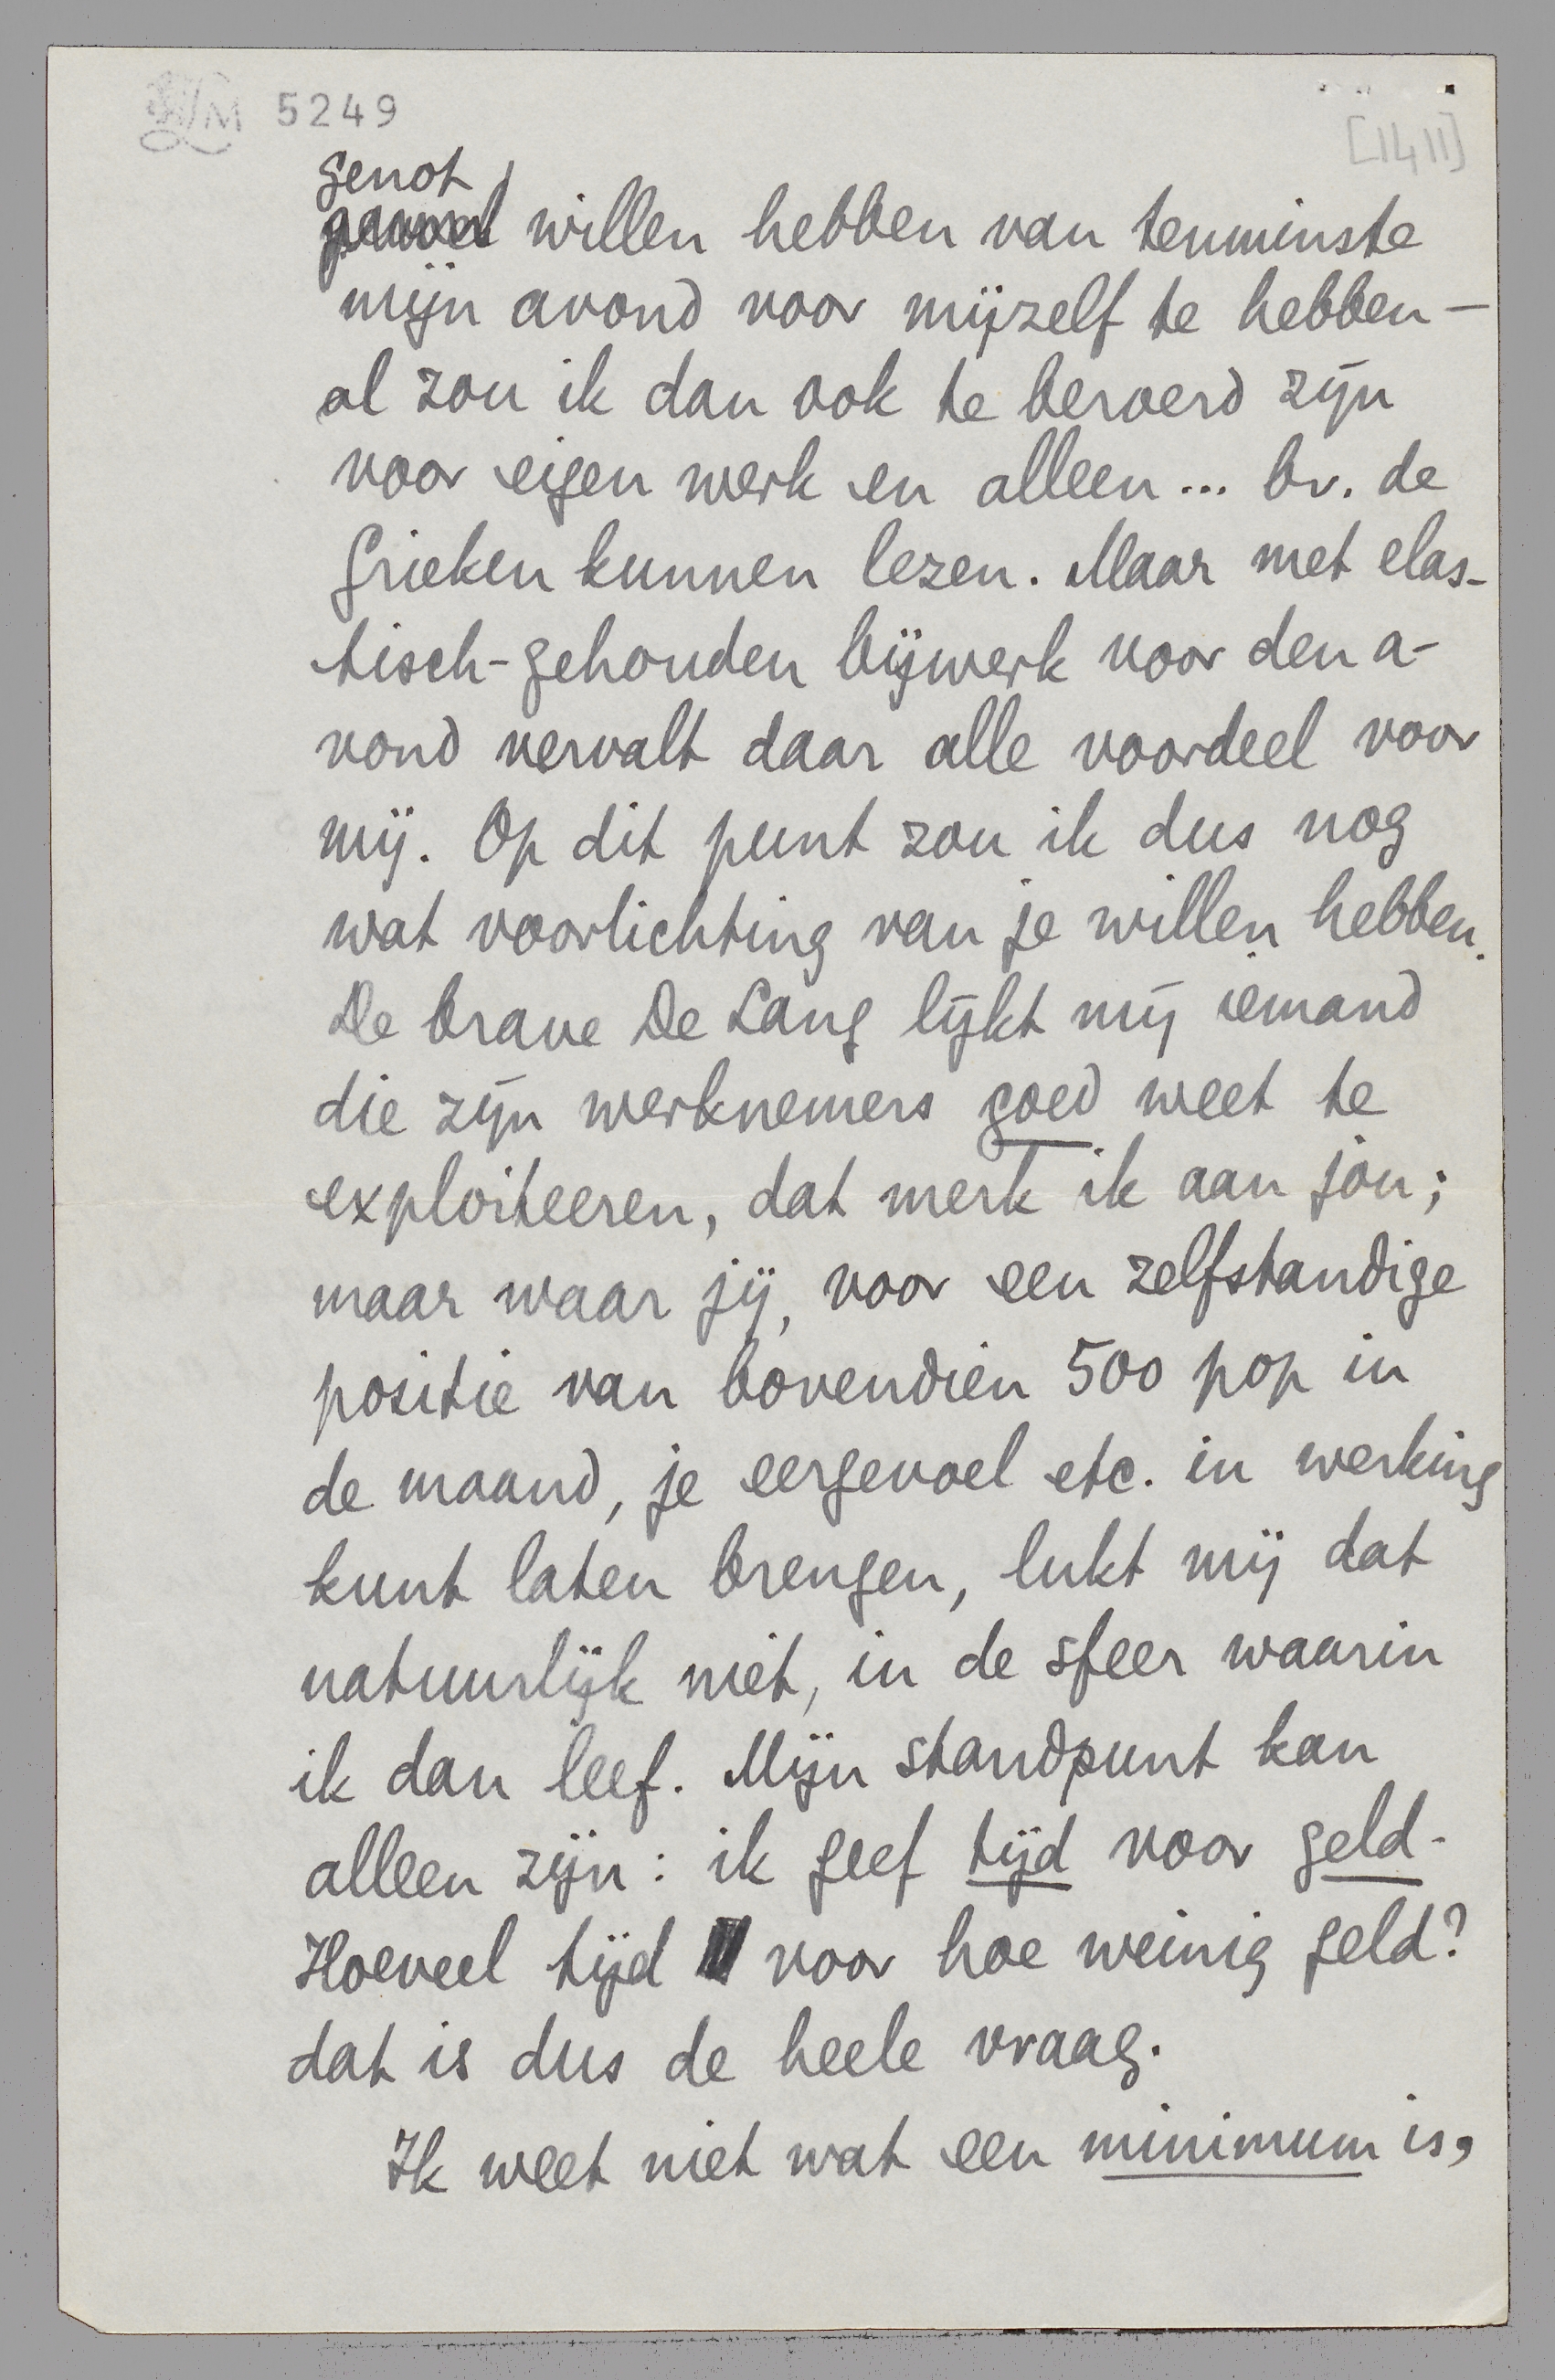 5249
[1411]
genot
willen hebben van tenminste
mijn avond voor mijzelf te hebben –
al zou ik dan ook te beroerd zijn
voor eigen werk en alleen... bv. de
Grieken kunnen lezen. Maar met elas-
tisch-gehouden bijwerk voor den a-
vond vervalt daar alle voordeel voor
mij. Op dit punt zou ik dus nog
wat voorlichting van je willen hebben.
De brave De Lang lijkt mij iemand
die zijn werknemers goed weet te
exploiteeren, dat merk ik aan jou;
maar waar jij, voor een zelfstandige
positie van bovendien 500 pop in
de maand, je eergevoel etc. in werking
kunt laten brengen, lukt mij dat
natuurlijk niet, in de sfeer waarin
ik dan leef. Mijn standpunt kan
alleen zijn: ik geef tijd voor geld.
Hoeveel tijd voor hoe weinig geld?
dat is dus de heele vraag.
Ik weet niet wat een minimum is,